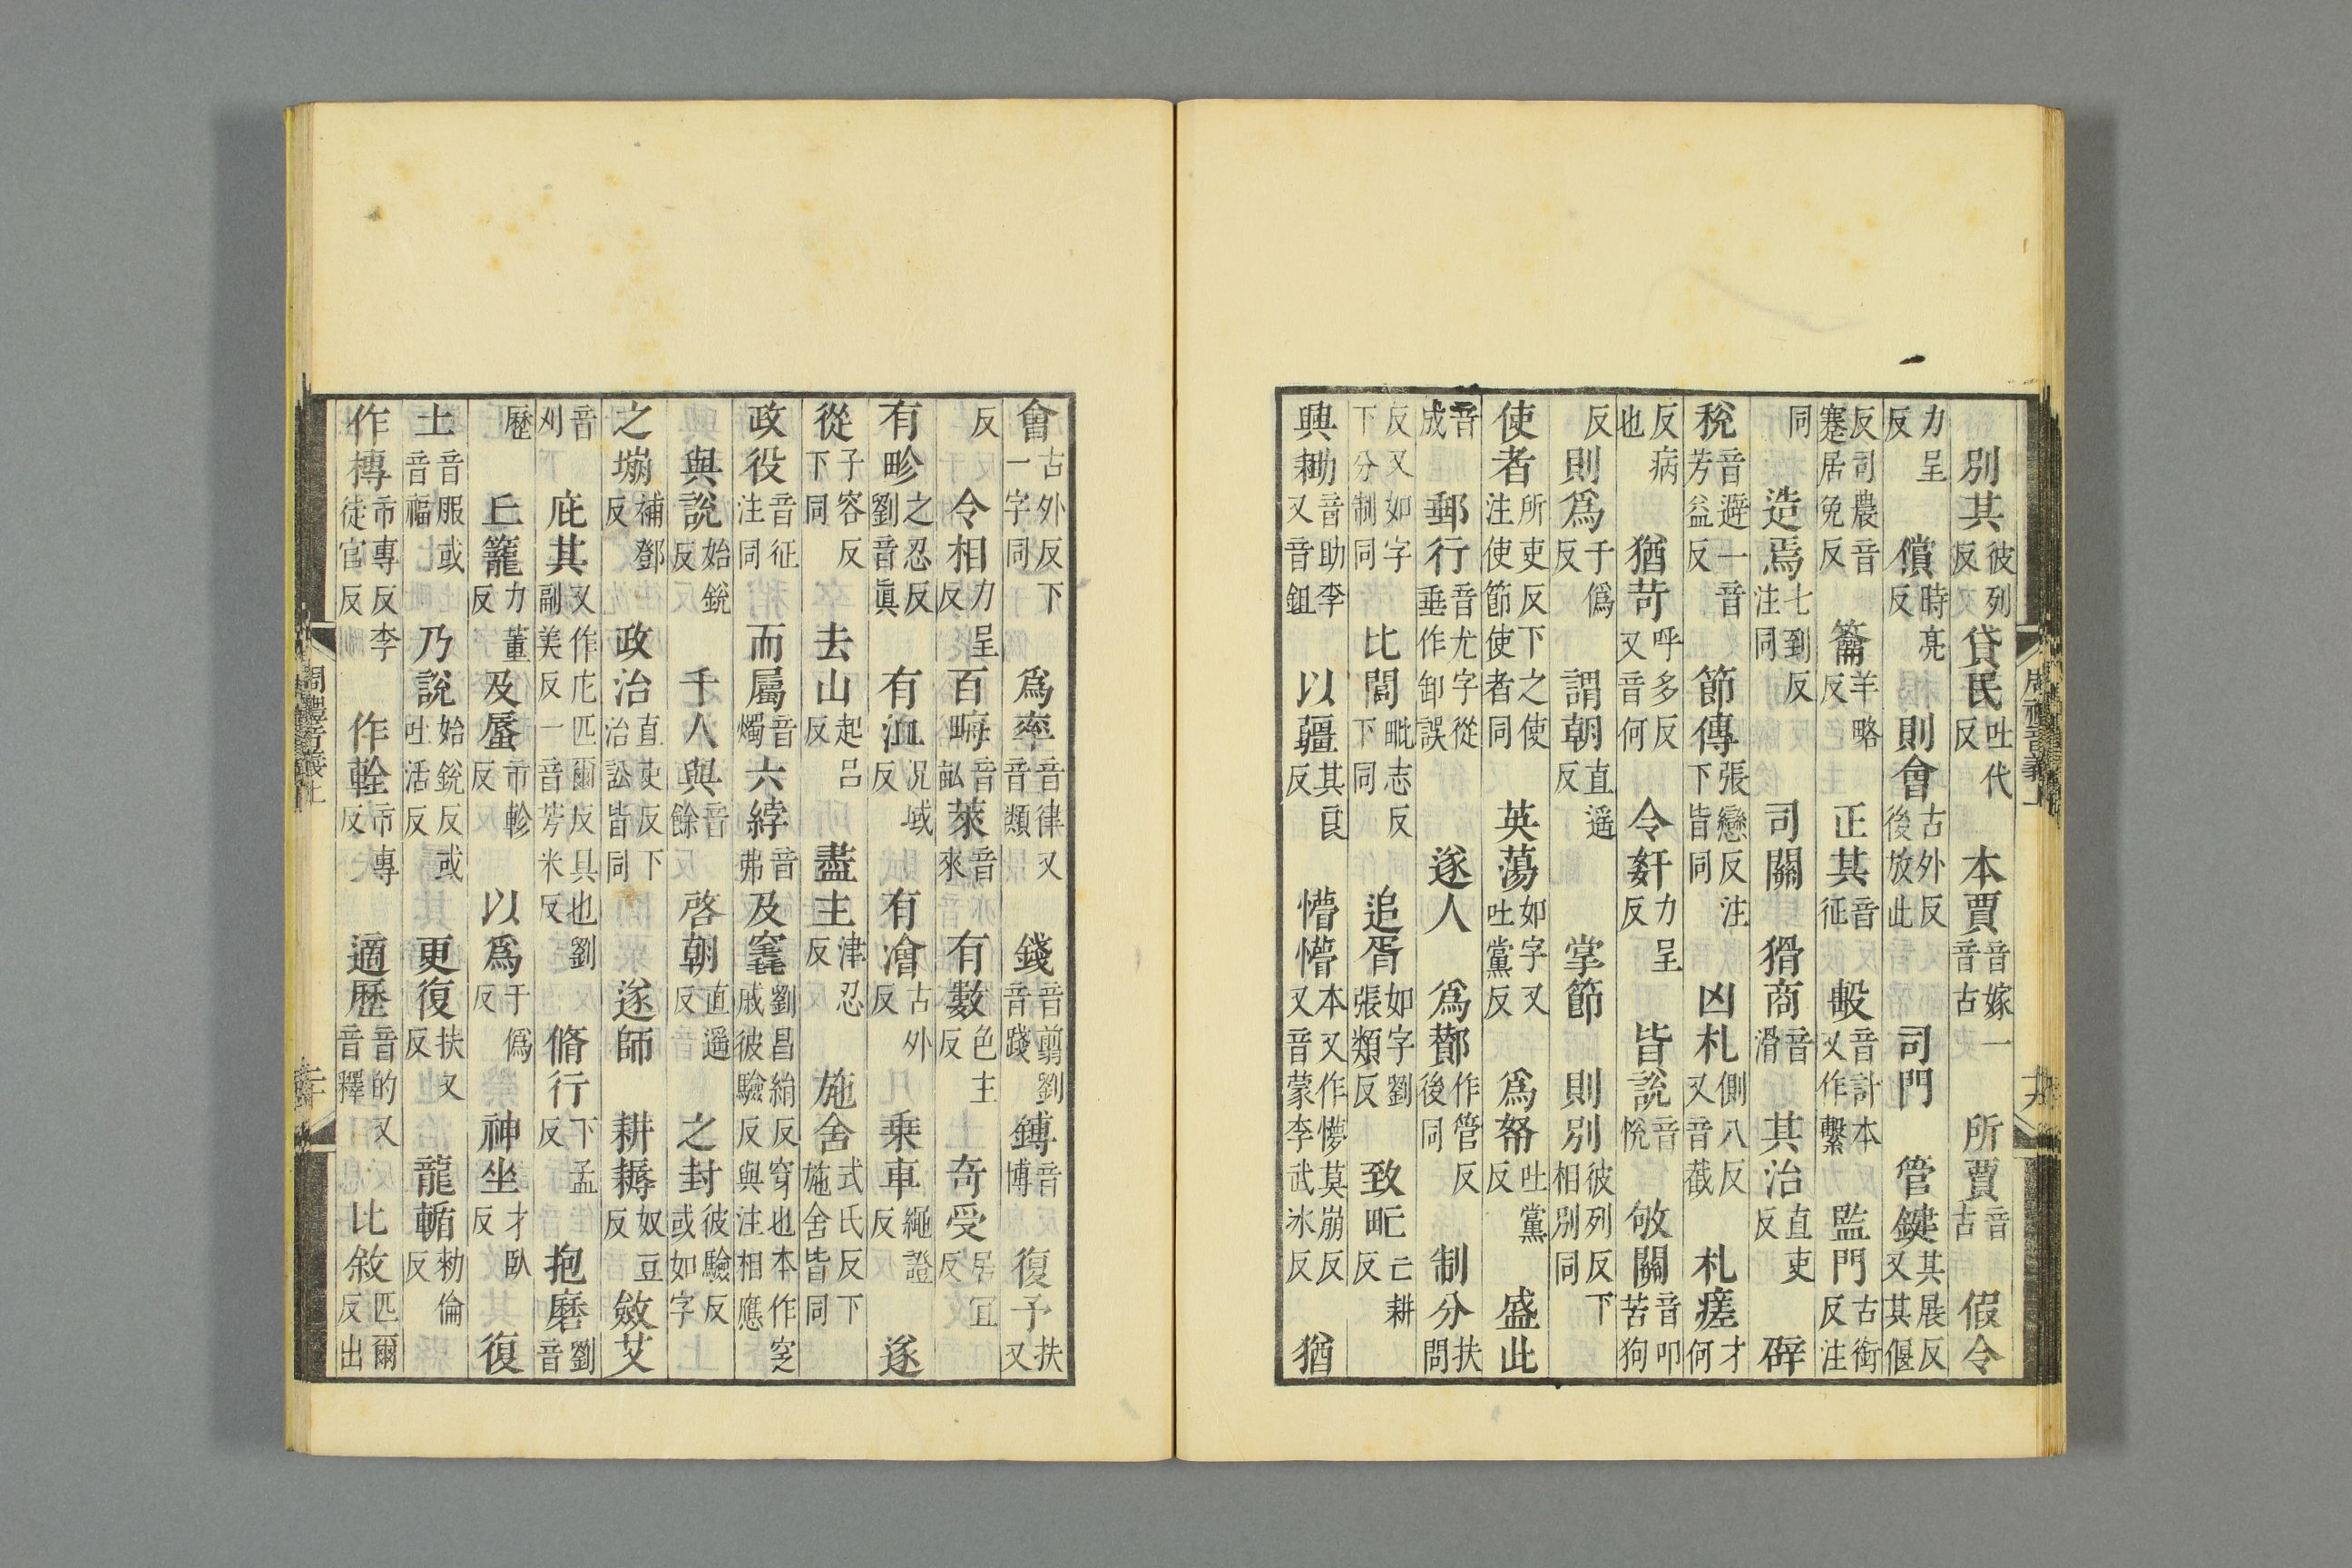 別其彼列反貸民吐代反本賈音嫁一音古所賈音古假令
力呈反償時亮反則會古外反後放此司門管鍵其展反又其偃
反司農音蹇居免反籥羊略反正其音征毄音計本又作繫監門古銜反注
同造焉七到反注同司關猾商音滑其治直吏反辟
稅音避一音芳益反節傳張戀反注下皆同凶札側八反又音截札瘥才何
反病也猶苛呼多反又音何令姦力呈反皆說音悅敂關音叩苦狗
反則爲于僞反謂朝直遥反掌節則別彼列反下相別同
使者所吏反下之使注使節使者同英蕩如字又吐黨反爲帑吐黨反盛此
音成郵行音尤字從垂作卸誤遂人爲酇作管反後同制分扶問
反又如字下分制同比閭毗志反下同追胥如字劉張類反致甿亡耕反
興耡音助李又音鉏以疆其良反懵懵本又作懜莫崩反又音蒙李武冰反猶
會古外反下一字同爲率音律又音類錢音剪劉音踐鎛音博復予扶又
反令相力呈反百畮音畝萊音來有數色主反奇受居宜反
有畛之忍反劉音眞有洫况域反有澮古外反乗車繩證反遂
從子容反下同去山起吕反盡主津忍反施舍式氏反下施舍皆同
政役音征注同而屬音燭六綍音弗及竁劉昌絹反穿也本作穸戚彼驗反與注相應
與說始銳反千人與音餘啓朝直遥反之封彼驗反或如字
之堋補鄧反政治直吏反下治訟皆同遂師耕耨奴豆反斂艾
音刈庇其又作庀匹爾反具也劉副美反一音芳米反脩行下孟反抱磨劉音
歷丘籠力董反及蜃市軫反以爲于僞反神坐才臥反復
土音服或音福乃說始銳反或吐活反更復扶又反龍輴勑倫反
作槫市專反李徒官反作輇市專反適歷音的又音釋比敘匹爾反出